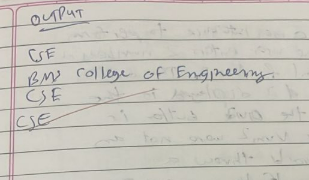 OUTPUT
CSE
BMS College of Engineering.
CSE
CSE